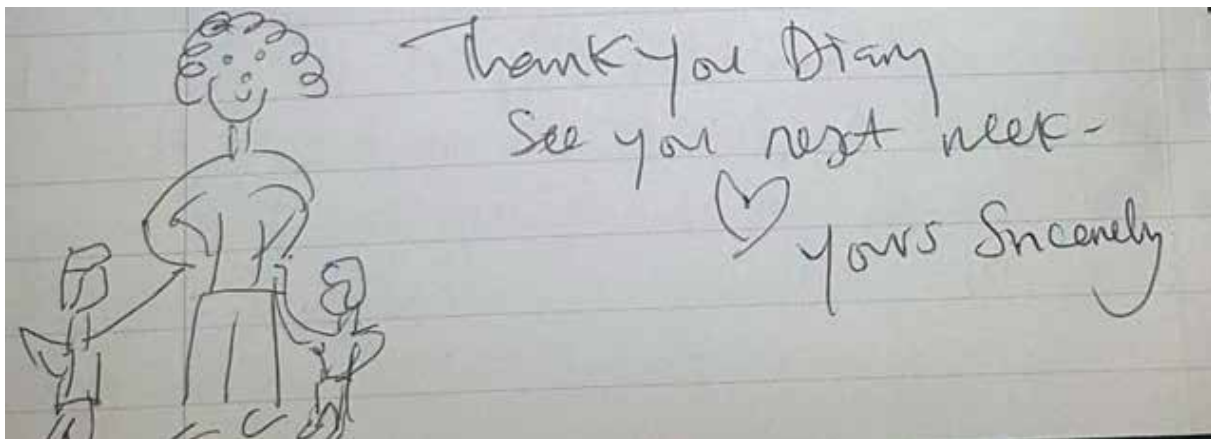 Thank you Diary
See you next week -
yours Sincerely